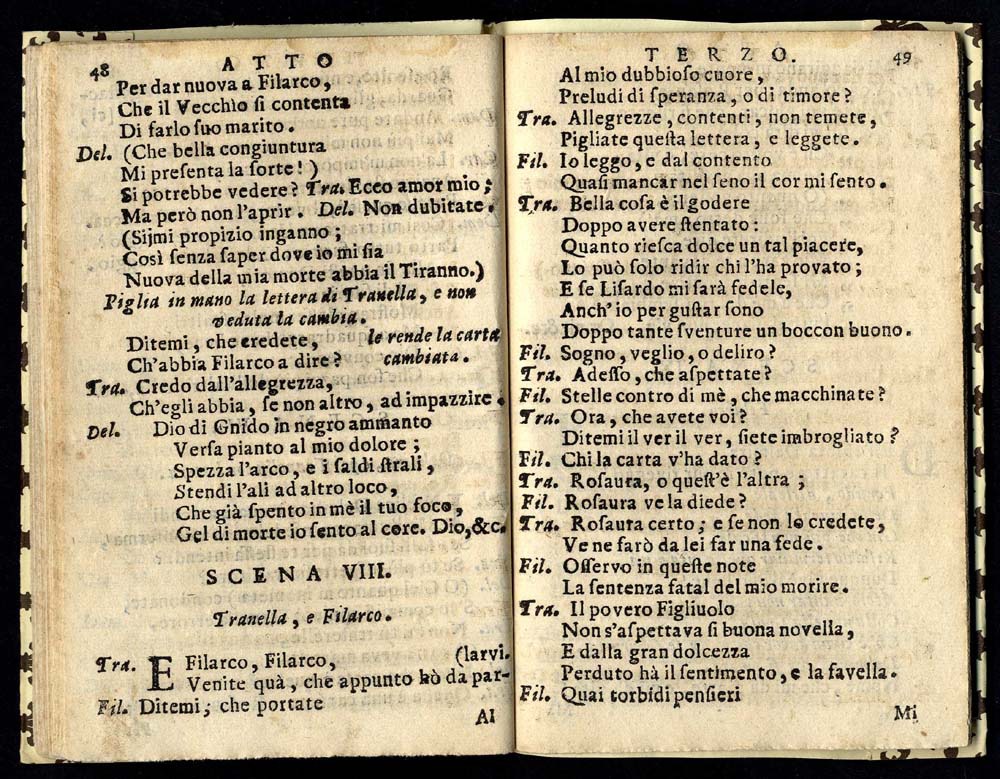 48 ATTO
Per dar nuova a Filarco,
Che il Vecchio ſi contenta
Di farlo ſuo marito.
Del. (Che bella congiuntura
Mi preſenta la ſorte!)
Si potrebbe vedere? Tra. Ecco amor mio;
Ma però non l'aprir. Del. Non dubitate.
(Sijmi propizio inganno;
Così ſenza ſaper dove io mi ſia
Nuova della mia morte abbia il Tiranno.)
Piglia in mano la lettera di Tranella, e non
veduta la cambia.
Ditemi, che credete, le rende la carta
Ch'abbia Filarco a dire? cambiata.
Tra. Credo dall'allegrezza,
Ch'egli abbia, ſe non altro, ad impazzire.
Del. Dio di Gnido in negro ammanto
Verſa pianto al mio dolore;
Spezza l'arco, e i ſaldi ſtrali,
Stendi l'ali ad altro loco,
Che già spento in mè il tuo foco,
Gel di morte io ſento al core. Dio,&c.
SCENA VIII.
Tranella, e Filarco.
Tra. E Filarco, Filarco, (larvi.
Venite quà, che appunto hò da par-
Fil. Ditemi; che portate
Al
TERZO. 49
Al mio dubbioſo cuore,
Preludi di ſperanza, o di timore?
Tra. Allegrezze, contenti, non temete,
Pigliate queſta lettera, e leggete.
Fil. Io leggo, e dal contento
Quaſi mancar nel ſeno il cor mi ſento.
Tra. Bella coſa è il godere
Doppo avere ſtentato:
Quanto rieſca dolce un tal piacere,
Lo può ſolo ridir chi l'ha provato;
E ſe Liſardo mi ſarà fedele,
Anch' io per guſtar ſono
Doppo tante ſventure un boccon buono.
Fil. Sogno, veglio, o deliro?
Tra. Adeſſo, che aſpettate?
Fil. Stelle contro di mè, che macchinate?
Tra. Ora, che avete voi?
Ditemi il ver il ver, ſiete imbrogliato?
Fil. Chi la carta v'ha dato?
Tra. Roſaura, o queſt'è l'altra;
Fil. Roſaura ve la diede?
Tra. Roſaura certo; e ſe non lo credete,
Ve ne farò da lei far una fede.
Fil. Oſſervo in queſte note
La ſentenza fatal del mio morire.
Tra. Il povero Figliuolo
Non s'aſpettava ſi buona novella,
E dalla gran dolcezza
Perduto hà il ſentimento, e la favella.
Fil. Quai torbidi penſieri
Mi